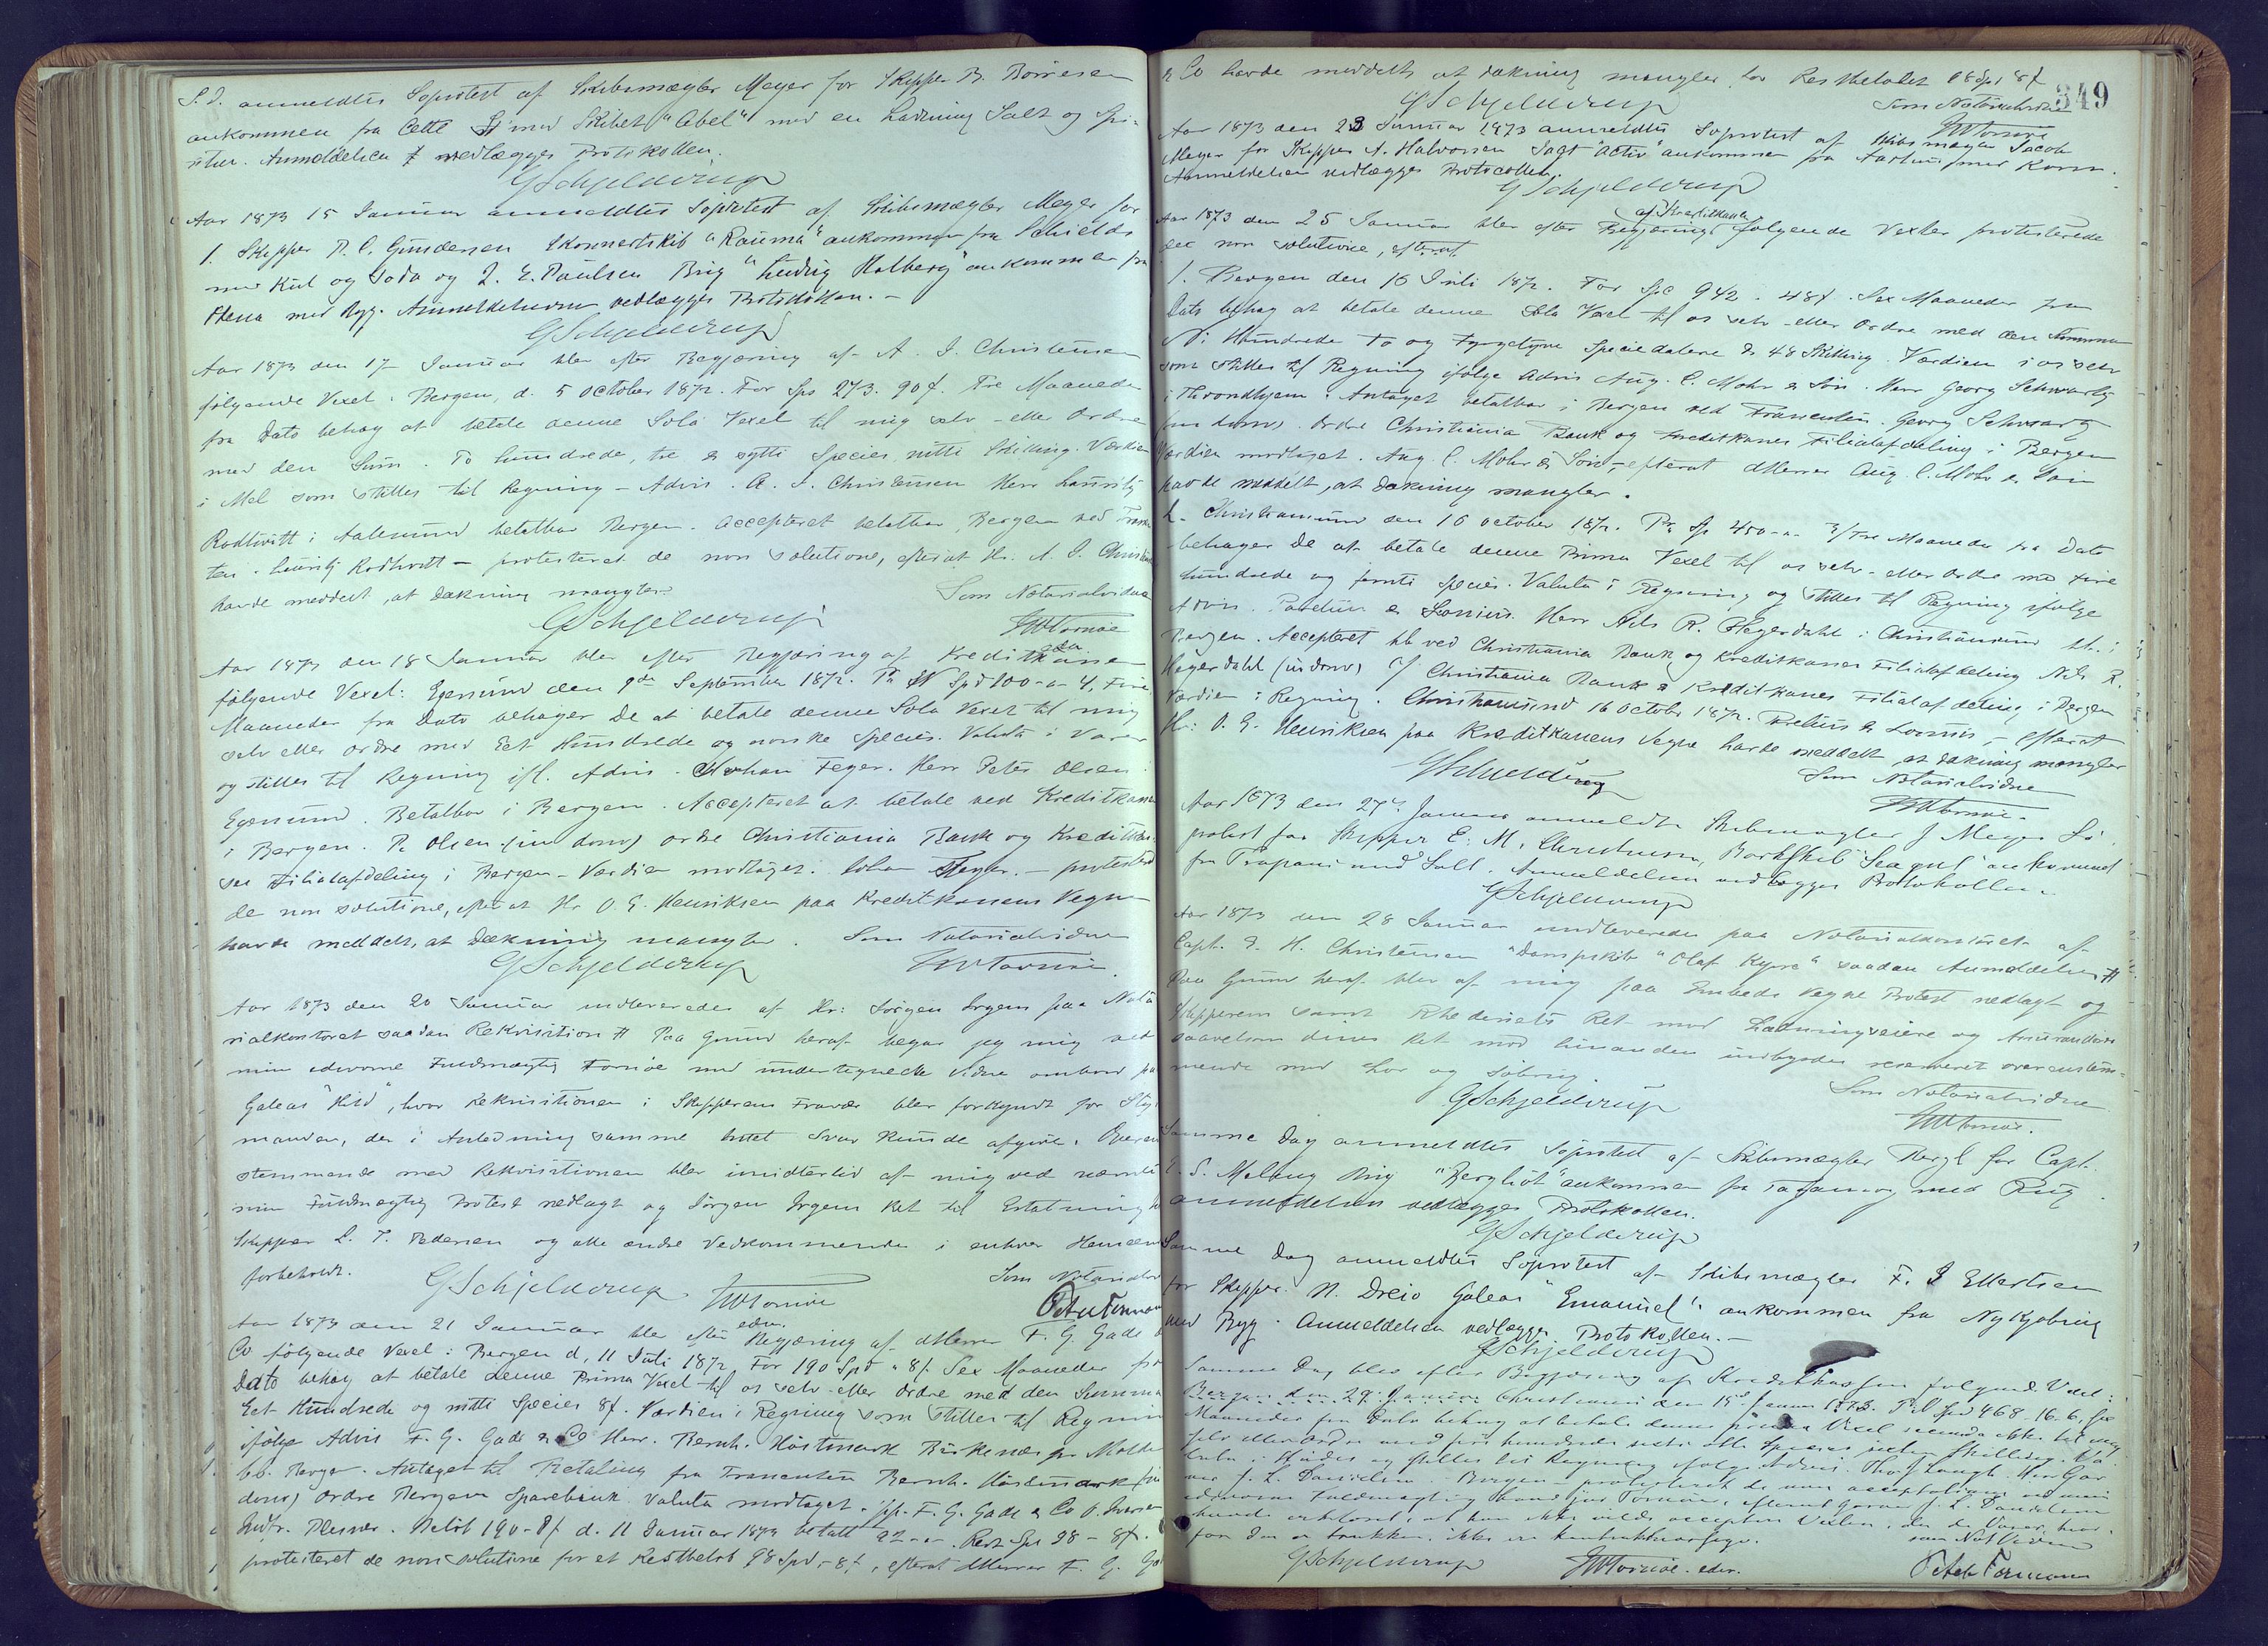 S. D. anmeldtes Soprotest af Skibsmægler Meyer for Skipper B. Börresen
ankommen fra Cette med Skibet "Abel" med en Ladning Salt og Spi-
ritus. Anmeldelsen # vedlægges Protokollen.
GSchjelderup
Aar 1873 15 Januar anmeldtes Soprotest af Skibsmægler Meyer for
1. Skipper N. C. Gundersen Skonnertskib "Rauma" ankommen fra Schields
med Kul og Soda og J. E. Paulsen Brig "Ludvig Holberg" ankommen fra
med Byg. Anmeldelserne vedlægges Protokollen. -
GSchjelderup
Aar 1873 den 17 Januar blev efter Begjæring af A. J. Christensen
følgende Vexel: Bergen, d. 5 October 1872. For Sps 273. 90 f. Tre Maaneder
fra Dato behag at betale denne Sola Vexel til mig selv - eller Ordre
med den Sum. To hundrede, tre & sytti Species nitti Skilling. Værdien
i Mel som stilles til Regning - Advis. A. J. Christensen Herr Lauritz
Rodtwitt i Aalesund betalbar Bergen. Accepteret betalbar Bergen ved Trassen-
ten. Lauritz Rodtwitt - protesteret de non solutione, efterat Hr. A. J. Christensen
havde meddelt, at Dækning mangler. Som Notarialvidne
GSchjelderup JWTornöe
Aar 1873 den 18 Januar blev efter Begjæring af Kreditkassen
følgende Vexel: Egersund den 9de September 1872. Pr Spd 100 - 4, Fire
Maaneder fra Dato behager De at betale denne Sola Vexel til mig
selv eller Ordre med Eet Hundrede og norske Species. Valuta i Varer
og stilles til Regning ifl. Advis. Johan Feyer. Herr Peter Olsen
Egersund. Betalbar i Bergen. Accepteret at betale ved Kreditkassen
i Bergen. P. Olsen (in dorso) Ordre Christiania Bank og Kreditkas-
ses Filialafdeling i Bergen - Værdien modtaget. Johan Feyer. - protesteret
de non solutione, efterat Hr O. E. Henriksen paa Kreditkassens Vegne
havde meddelt, at Dækning mangler. Som Notarialvidne
GSchjelderup JWTornöe.
Aar 1873 den 20 Januar indleveredes af Hr: Jørgen Irgens paa Nota-
rialkontoret saadan Rekvisition # Paa Grund heraf begav jeg mig ved
min edsvorne Fuldmægtig Tornöe med undertegnede Vidne ombord paa
Galeas "Hild", hvor Rekvisitionen i Skipperens Fravær blev forkyndt for Styr-
manden, der i Anledning samme intet Svar kunde afgive. Overens-
stemmende med Rekvisitionen blev imidlertid af mig ved nævnte
min Fuldmægtig Protest nedlagt og Jörgen Irgens Ret til Erstatning hos
Skipper L. T. Pedersen og alle andre Vedkommende i enhver Henseende
forbeholdt. Som Notarialvidne
GSchjelderup JWTornöe Peter Formann
Aar 1873 den 21 Januar blev efter edsv. Begjæring af d'Herrer F. G. Gade &
Co følgende Vexel: Bergen d. 11 Juli 1872 For 190 Spd " 8 f. Sex Maaneder fra
Dato behag at betale denne Prima Vexel til os selv - eller Ordre med den Summa
Eet Hundrede og nitti Species 8 f. Værdien i Regning som stilles til Regning
ifölge Advis F. G. Gade & Co Herr. Bernh. Hästmark Birkenæs pr Molde
bb. Bergen. Antaget til Betaling fra Trassenten Bernh. Hästmark (in
dorso) Ordre Bergens Sparebank Valuta modtaget. pp. F. G. Gade & Co O. Iversen
Indfr. Plesner. Belöb 190 - 8 f d. 11 Januar 1873 betalt 92 - Rest Spd 98 - 8 f.
protesteret de non solutione for et Restbelöb 98 Spd - 8 f, efterat d'Herrer F. G. Gade
& Co havde meddelt, at Dækning mangler for Restbelöbet 98 Spd 8 f
349
GSchjelderup Som Notarialvidne
JWTornöe
Aar 1873 den 23 Januar 1873 anmeldtes Soprotest af Skibsmægler Jacob
Meyer for Skipper A. Halvorsen Jagt "Activ" ankommen fra Aarhus med Korn.
Anmeldelsen vedlægges Protocollen.
GSchjelderup
Aar 1873 den 25 Januar blev efter Begjæring af Kreditkassen følgende Vexler protesterede
de non solutione, efterat
1. Bergen den 16 Juli 1872. For Spc 942. 48 f. Sex Maaneder fra
Dato behag at betale denne Sola Vexel til os selv - eller Ordre med den Summa
Ni Hundrede To og Fyrgetyve Speciedalere & 48 Skilling. Værdien i os selv
som stilles til Regning ifølge Advis Aug. C. Mohr & Sön. Herr Georg Schwartz
i Throndhjem. Antaget betalbar i Bergen ved Trassenten. Georg Schwartz
(in dorso). Ordre Christiania Bank og Kreditkasses Filialafdeling i Bergen
Værdien modtaget. Aug. C. Mohr & Sön - efterat d'Herrer Aug. C. Mohr & Sön
havde meddelt, at Dækning mangler.
2. Christiansund den 16 October 1872. Pr Sp 450 - 3/Tre Maaneder fra Dato
behager De at betale denne Prima Vexel til os selv - eller Ordre med Fire
hundrede og femti Species. Valuta i Regning og stilles til Regning ifølge
Advis. & Loennis. Herr Nils R. Hegerdahl i Christiansund bb. i
Bergen. Accepteret bb ved Christiania Bank og Kreditkasses Filialafdeling Nils R.
Hegerdahl (in dorso) Christiania Bank & Kreditkasses Filialafdeling i Bergen
Værdien i Regning. Christiansund 16 October 1872. & Loennis, - efterat
Hr: O. E. Henriksen paa Kreditkassens Vegne havde meddelt, at Dækning mangler
GSchjelderup Som Notarialvidne
JWTornöe.
Aar 1873 den 27de Januar anmeldte Skibsmægler J Meyer Sö-
protest for Skipper E. M. Christensen, Barkskib "Sea gul" ankommen
fra Trapani med Salt. Anmeldelsen vedlægges Protokollen
GSchjelderup
Aar 1873 den 28 Januar indleveredes paa Notarialkontoret af
Capt. J. H. Christensen "Dampskib "Olaf Kyrre" saadan Anmeldelse #
Paa Grund heraf blev af mig paa Embeds Vegne Protest nedlagt og
Skipperens samt Rhederiets Ret mod Ladningseiere og Assurandeurer
saavelsom disses Ret mod hinanden indbyrdes reserveret overensstem-
mende med Lov og Söbrug.
GSchjelderup Som Notarialvidne
JWTornöe.
Samme Dag anmeldtes Söprotest af Skibsmægler for Capt.
Brig "Bergliot" ankommen fra Taganrog med Rug.
Anmeldelsen vedlægges Protokollen.
GSchjelderup
Samme Dag anmeldtes Soprotest af Skibsmægler F. J Ellertsen
for Skipper N. Dreio Galeas "Emanuel" ankommen fra Nykjøbing
med Byg. Anmeldelsen vedlægges Protokollen. -
GSchjelderup
Samme Dag blev efter Begjæring af Kreditkassen følgende Vexel:
Bergen den 29. Januar Christiansund den 15de Januar 1873. Pr Spd 468 - 16 - 6, Sex
Maaneder fra Dato behag at betale denne prima Vexel secunda ikke, til mig
selv eller Ordre med fire hundrede sexti otte Species sexten Skilling. Va-
luta i og stilles til Regning ifølge Advis. Herr
J. L. Danielsen Bergen - protesteret de non acceptatione ved min
edsvorne Fuldmægtig Tornöe, efterat J. L. Danielsen
havde erklæret, at han ikke vilde acceptere Vexlen, da de Varer, hvor-
for den er trukken, ikke er kontraktmæssige. som Not Vidne
GSchjelderup JWTornöe. edsv. Peter Formann